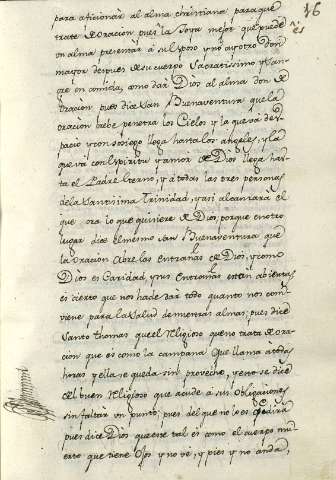 16
para aficionar al alma christiana para que
trate de oracion pues la Joya mejor que puede
un alma presentar a su esposo y no ay otro don
mayor despues de su cuerpo Sacratissimo y san-
gre en comida, como dar Dios al alma don de
oracion pues dice San Buenaventura que la
oracion bebe penetra los Cielos y la que va des-
pacio y con sosiego llega hasta los angeles, y la
que va con espiritu y amor de Dios llega has-
ta el Padre Eterno, y a todas las tres personas
de la Santissima Trinidad, y asi alcançara el
que ora lo que quiniere de Dios, porque en otro
lugar dice el mesmo san Buenaventura que
la oracion abre las entrañas de Dios, y como
Dios es Caridad, y sus Entrañas estan abiertas
es cierto que nos hade dar todo quanto nos con-
viene para la Salud de nuestras almas; pues dice
Santo thomas que el Religioso que no trata de ora-
cion que es como la campana que llama a todas
horas y ella se queda sin provecho, y esto se dice
del buen Religioso que acude a sus obligaciones
sin faltar un punto, pues del que no lo es que dira
pues dice Dios que este tal es como el cuerpo mu-
erto que tiene ojos y no ve, y pies y no anda,